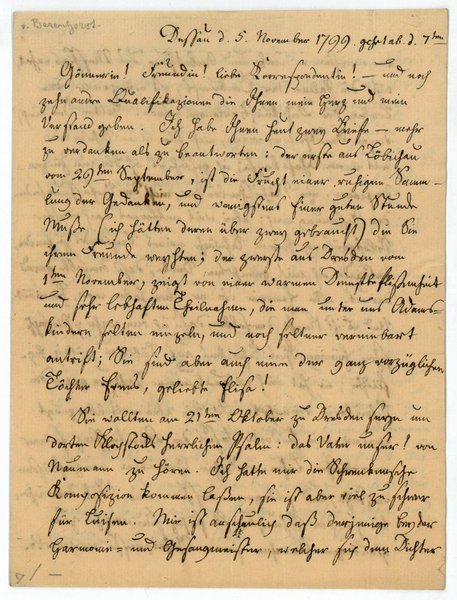 v. Berenhorst.
Dessau d. 5. November 1799 geht ab d. 7ten
Gönnerin! Freündin! liebe Korrespondentin! — und noch
zehn andre Qualifikazionen die Ihnen mein Herz und mein
Verstand geben. Ich habe Ihnen heut zwey Briefe — mehr
zu verdanken als zu beantworten: der erste aus Löbichau
vom 29ten September, ist die Frucht einer ruhigen Samm-
lung der Gedanken, und wenigstens Einer guten Stunde
Muße (ich hätten deren über zwey gebraucht) die Sie
ihrem Freunde weyhten; der zweyte aus Dresden vom
1ten November, zeigt von einer warmen Dienstbeflißenheit
und sehr lebhaften Theilnahme, die man unter uns Adams-
kindern selten einzeln, und noch seltner vereinbart
antrift; Sie sind aber auch eine der ganz vorzüglichen
Töchter Evens, geliebte Elisa!
Sie wollten am 21ten Oktober zu Dresden seyn um
dorten Klopstoks herrlichen Psalm: das Vater unser! von
Naumann zu hören. Ich hatte mir die Schwenkesche
Komposizion kommen laßen, sie ist aber viel zu schwer
für Luisen. Mir ist anschaulich daß derjenige beyder
Harmonie- und Gesangmeister, welcher sich dem Dichter